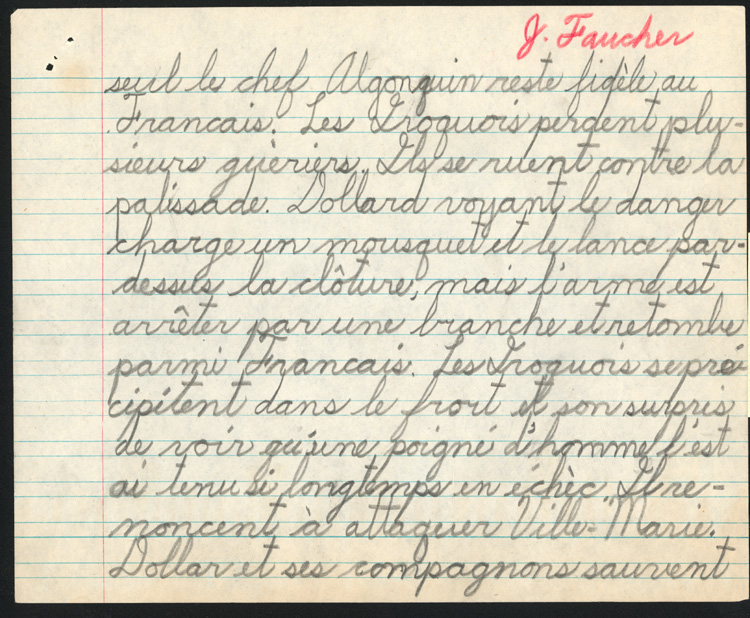 J. Faucher
seul le chef Algonquin reste fidèle au
Francais. Les Iroquois perdent plu-
sieurs guèriers. Ils se ruent contre la
palissade. Dollard voyant le danger
charge un mousquet et le lance par-
dessus la clôture, mais l'arme est
arrêter par une branche et retombe
parmi Francais. Les Iroquois se pré-
cipitent dans le fort et son surpris
de voir qu'une poigné d'homme l'est
ai tenu si longtemps en échèc. Il re-
noncent à attaquer Ville-Marie.
Dollar et ses compagnons sauvent